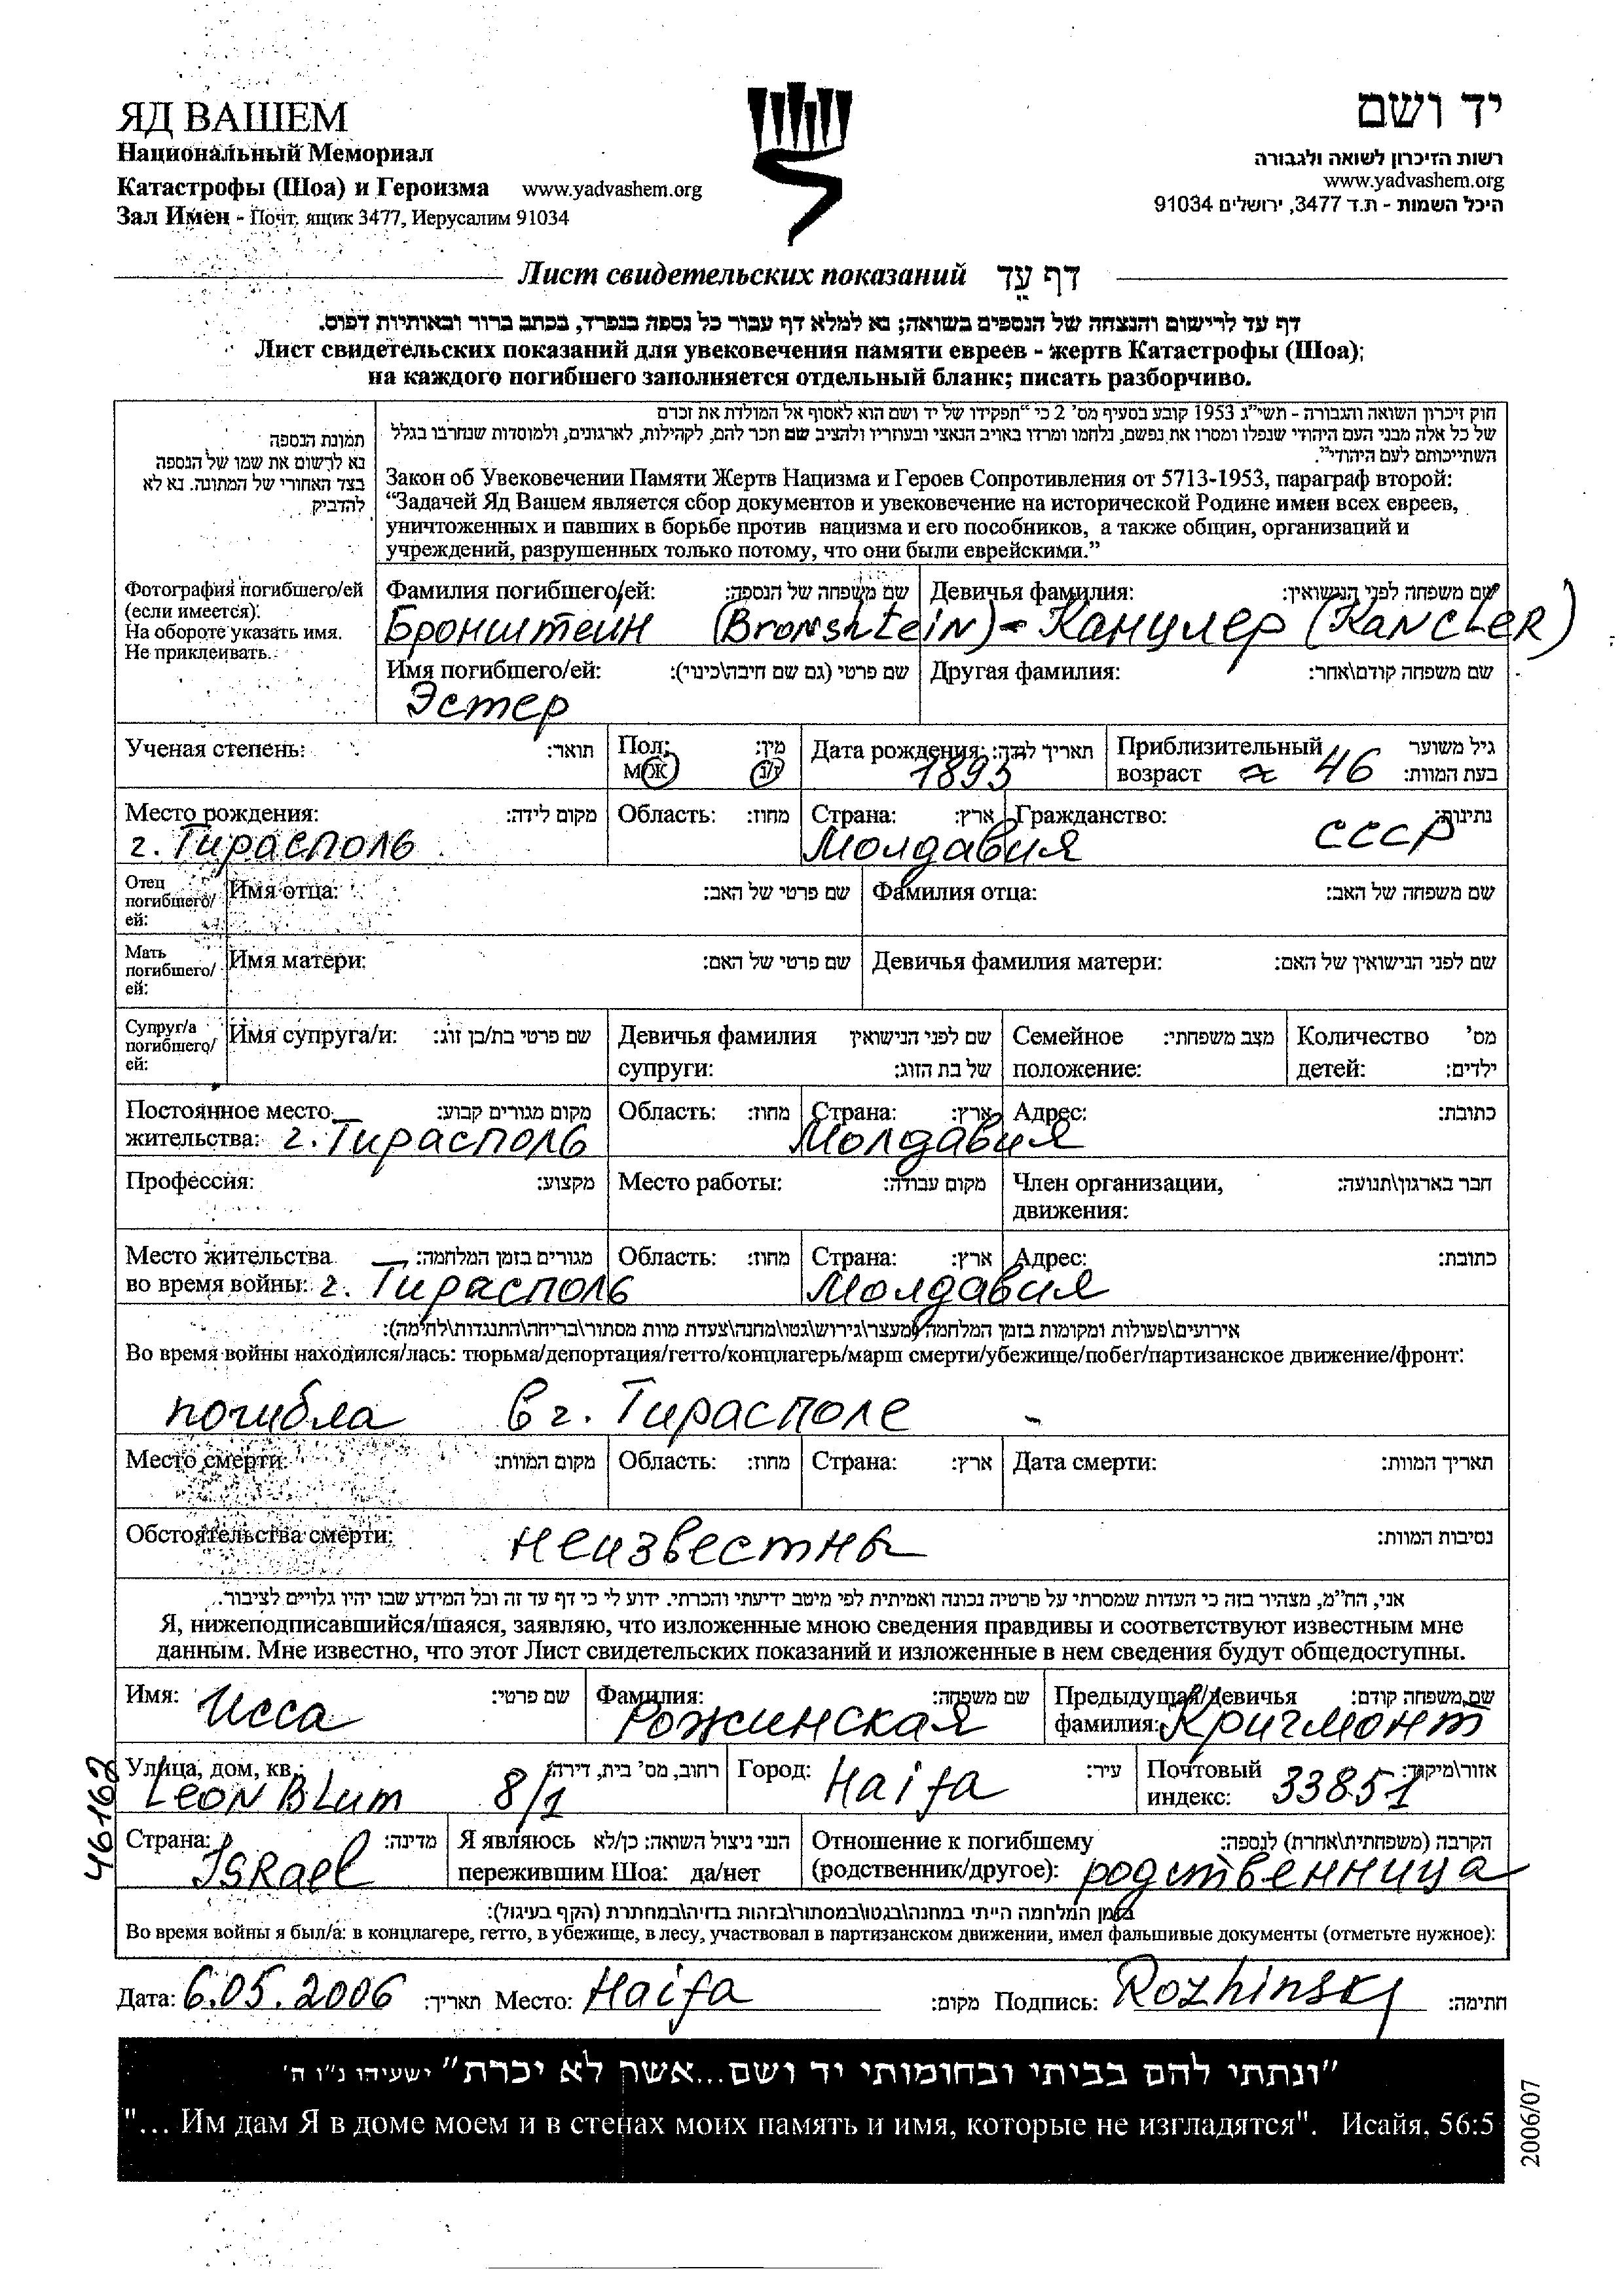 ЯД ВАШЕМ
Национальный Мемориал
Катастрофы (Шоа) и Героизма www.yadvashem.org
Зал Имен - Почт. ящик 3477, Иерусалим 91034
יד ושם
רשות הזיכרון לשואה ולגבורה
www.yadvashem.org
היכל השמות - ת.ד 3477, ירושלים 91034
Лист свидетельских показаний דף עֵד
דף עד לרישום והנצחה של הנספים בשואה; נא למלא דף עבור כל נספה בנפרד, בכתב ברור ובאותיות דפוס.
Лист свидетельских показаний для увековечения памяти евреев - жертв Катастрофы (Шоа);
на каждого погибшего заполняется отдельный бланк; писать разборчиво.
תמונת הנספה
נא לרשום את שמו של הנספה
בצד האחורי של התמונה. נא לא
להדביק
Фотография погибшего/ей
(если имеется).
На обороте указать имя.
Не приклеивать.
חוק זיכרון השואה והגבורה - תשי"ג 1953 קובע בסעיף מס' 2 כי "תפקידו של יד ושם הוא לאסוף אל המולדת את זכרם
של כל אלה מבני העם היהודי שנפלו ומסרו את נפשם, נלחמו ומרדו באויב הנאצי ובעוזריו ולהציב שם וזכר להם, לקהילות, לארגונים, ולמוסדות שנחרבו בגלל
השתייכותם לעם היהודי".
Закон об Увековечении Памяти Жертв Нацизма и Героев Сопротивления от 5713-1953, параграф второй:
"Задачей Яд Вашем является сбор документов и увековечение на исторической Родине имен всех евреев,
уничтоженных и павших в борьбе против нацизма и его пособников, а также общин, организаций и
учреждений, разрушенных только потому, что они были еврейскими."
Фамилия погибшего/ей: שם משפחה של הנספה: Девичья фамилия: שם משפחה לפני הנישואין:
Бронштейн (Bronshtein) - Канцлер (Kancler)
Имя погибшего/ей: שם פרטי (גם שם חיבה\כינוי): Другая фамилия: שם משפחה קודם\אחר:
Эстер
Ученая степень: תואר: Пол: מין: Дата рождения: תאריך לידה: Приблизительный גיל משוער
М/Ж ז/נ 1895 возраст ≈ 46 בעת המוות:
Место рождения: מקום לידה: Область: מחוז: Страна: ארץ: Гражданство: נתינות:
г. Тирасполь Молдавия СССР
Отец погибшего/ей: Имя отца: שם פרטי של האב: Фамилия отца: שם משפחה של האב:
Мать погибшего/ей: Имя матери: שם פרטי של האם: Девичья фамилия матери: שם לפני הנישואין של האם:
Супруг/а погибшего/ей: Имя супруга/и: שם פרטי בת/בן זוג: Девичья фамилия שם לפני הנישואין Семейное מצב משפחתי: Количество מס'
супруги: של בת הזוג: положение: детей: ילדים:
Постоянное место מקום מגורים קבוע: Область: מחוז: Страна: ארץ: Адрес: כתובת:
жительства: г. Тирасполь Молдавия
Профессия: מקצוע: Место работы: מקום עבודה: Член организации, חבר בארגון\תנועה:
движения:
Место жительства מגורים בזמן המלחמה: Область: מחוז: Страна: ארץ: Адрес: כתובת:
во время войны: г. Тирасполь Молдавия
אירועים\פעולות ומקומות בזמן המלחמה (מעצר\גירוש\גטו\מחנה\צעדת מוות\מסתור\בריחה\התנגדות\לחימה):
Во время войны находился/лась: тюрьма/депортация/гетто/концлагерь/марш смерти/убежище/побег/партизанское движение/фронт:
погибла в г. Тирасполе -
Место смерти: מקום המוות: Область: מחוז: Страна: ארץ: Дата смерти: תאריך המוות:
Обстоятельства смерти: неизвестны נסיבות המוות:
אני, הח"מ, מצהיר בזה כי העדות שמסרתי על פרטיה נכונה ואמיתית לפי מיטב ידיעתי והכרתי. ידוע לי כי דף עד זה וכל המידע שבו יהיו גלויים לציבור.
Я, нижеподписавшийся/шаяся, заявляю, что изложенные мною сведения правдивы и соответствуют известным мне
данным. Мне известно, что этот Лист свидетельских показаний и изложенные в нем сведения будут общедоступны.
Имя: Исса שם פרטי: Фамилия: Рожинская שם משפחה: Предыдущая/девичья שם משפחה קודם:
фамилия: Кригмонт
Улица, дом, кв.: רחוב, מס' בית, דירה: Город: Haifa עיר: Почтовый אזור\מיקוד:
Leon Blum 8/1 индекс: 33851
46162
Страна: Israel מדינה: Я являюсь הנני ניצול השואה: כן/לא Отношение к погибшему הקרבה (משפחתית\אחרת) לנספה:
пережившим Шоа: да/нет (родственник/другое): родственница
בזמן המלחמה הייתי במחנה\בגטו\במסתור\בזהות בדויה\במחתרת (הקף בעיגול):
Во время войны я был/а: в концлагере, гетто, в убежище, в лесу, участвовал в партизанском движении, имел фальшивые документы (отметьте нужное):
Дата: 6.05.2006 תאריך: Место: Haifa מקום: Подпись: Rozhinsky חתימה:
"ונתתי להם בביתי ובחומותי יד ושם...אשר לא יכרת" ישעיהו נ"ו ה'
"... Им дам Я в доме моем и в стенах моих память и имя, которые не изгладятся". Исайя, 56:5
2006/07